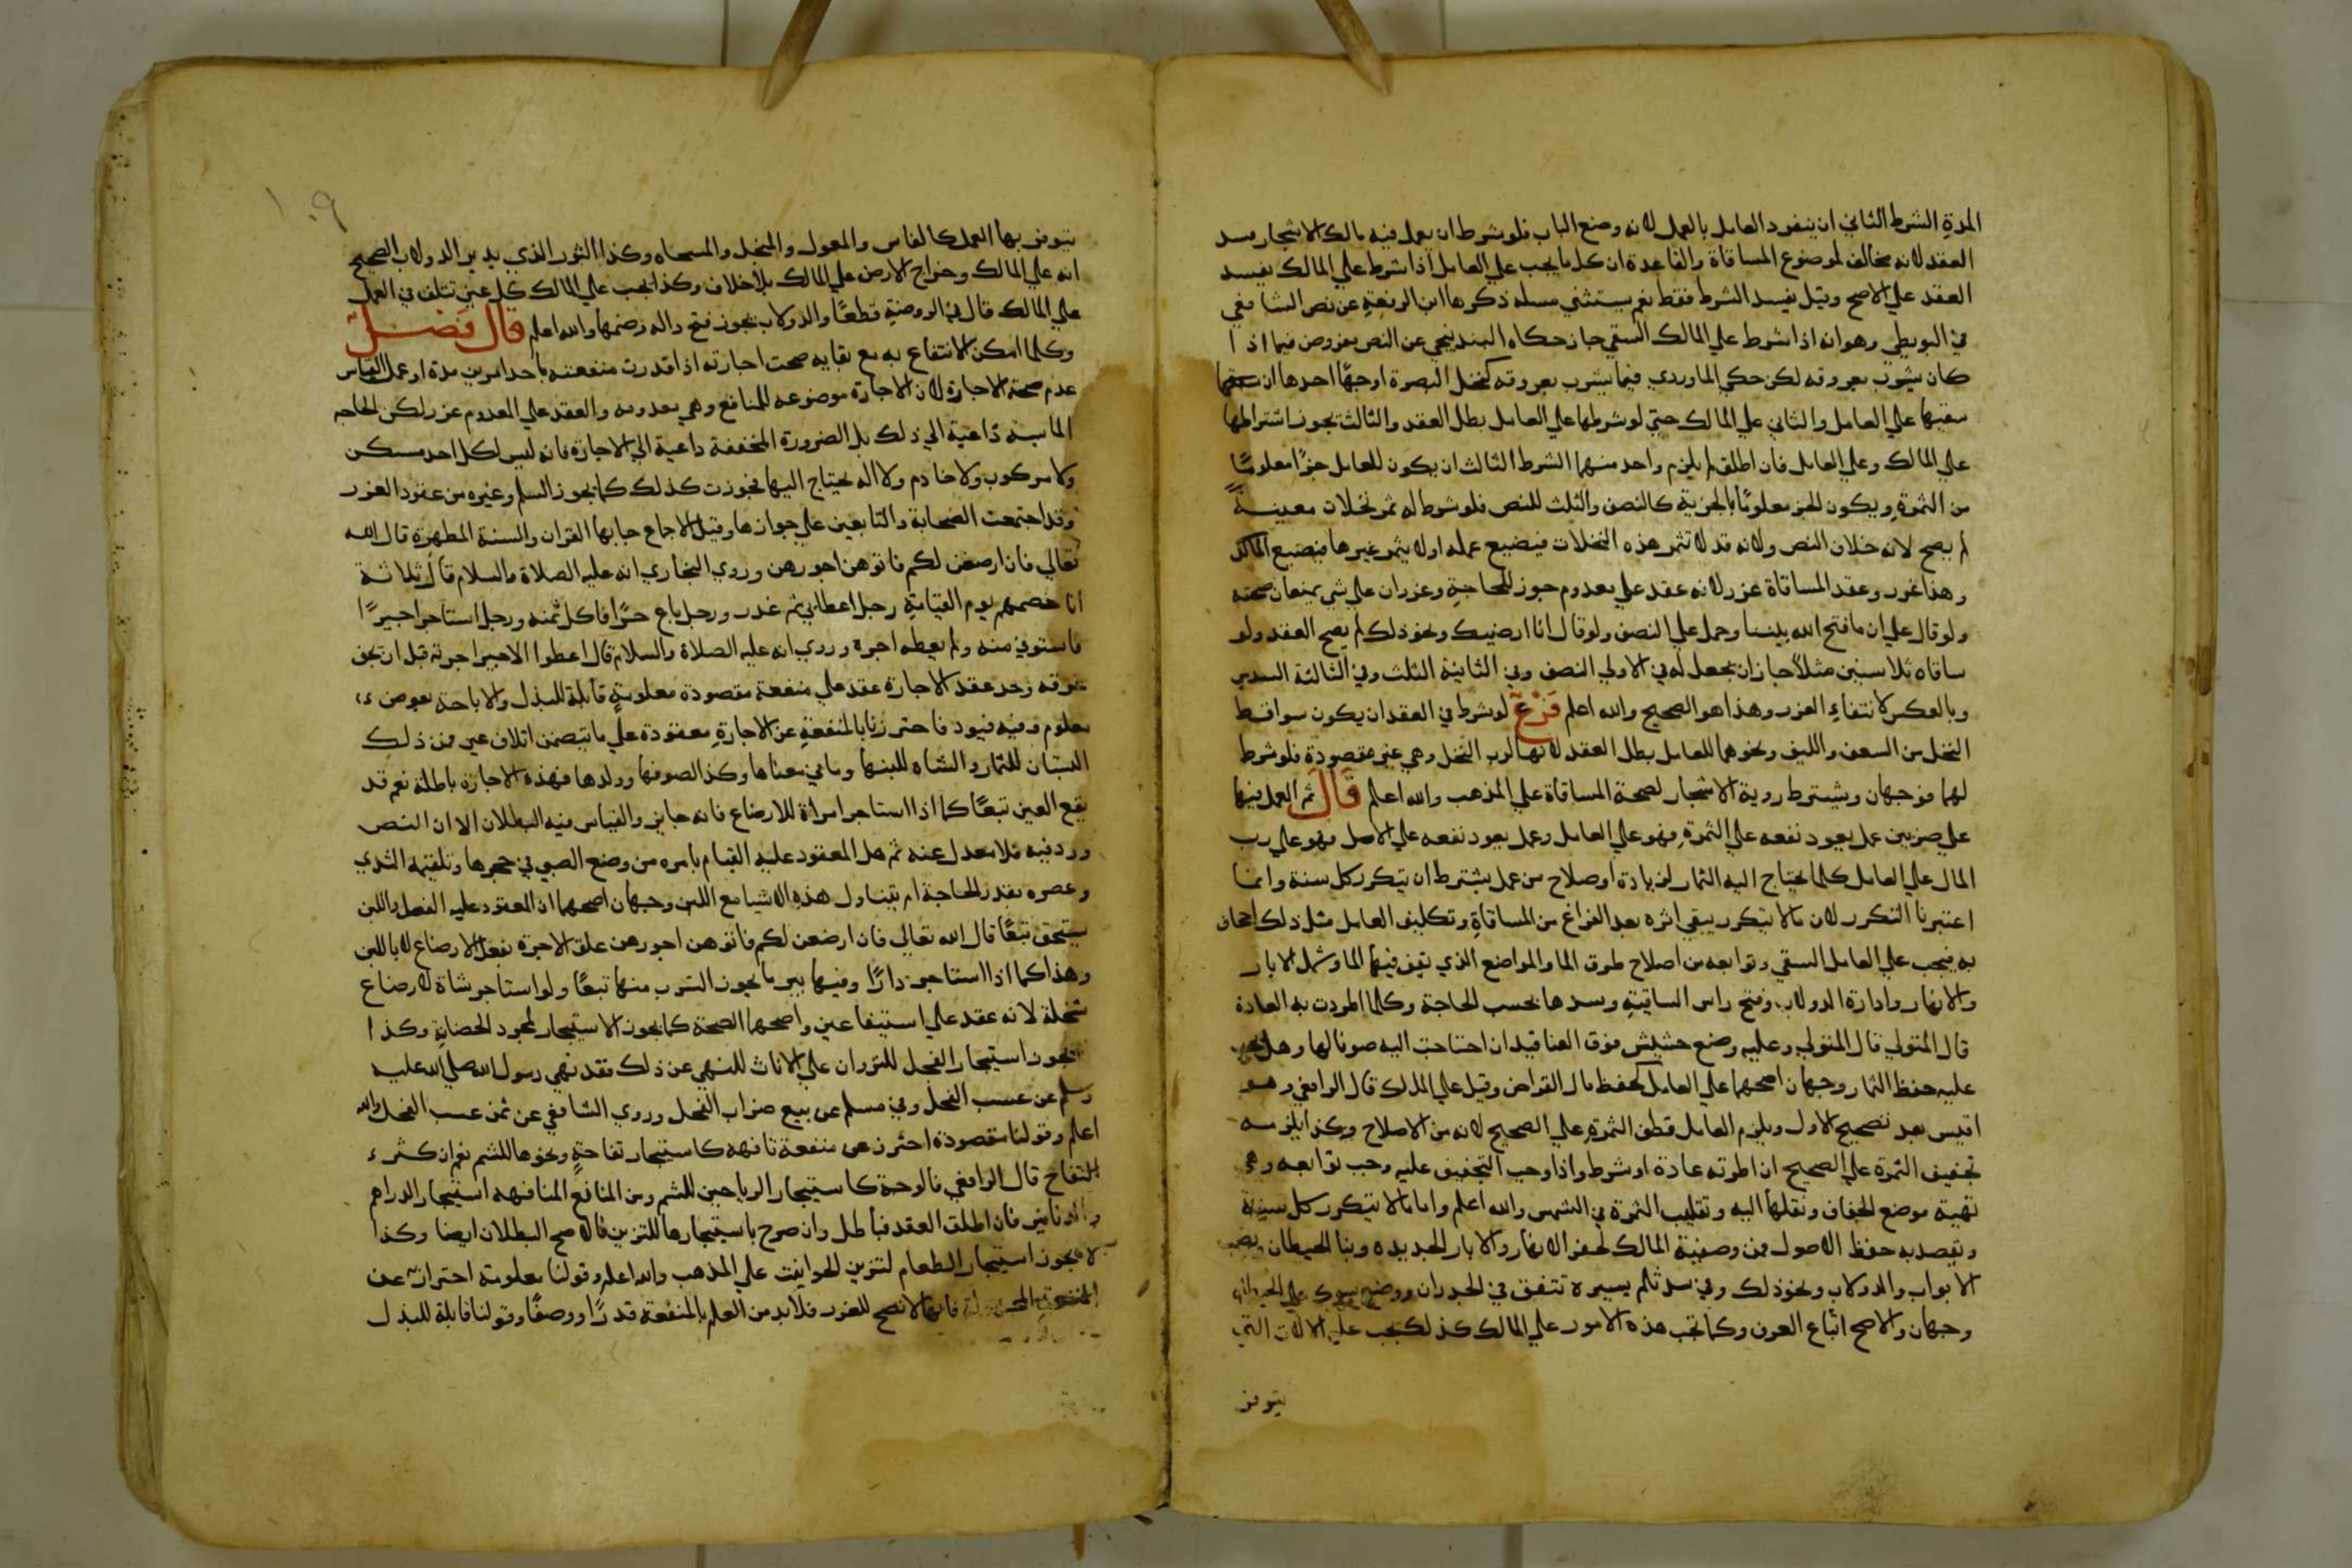 المدة الشرط الثاني ان ينفرد العامل بالعمل لانه وضع الباب فلو شرط ان يعمل فيه مالك الاشجار فسد
العقد لانه مخالف لموضوع المساقاة والقاعدة ان كل ما يجب علي العامل اذا شرط علي المالك يفسد
العقد علي الاصح وقيل يفسد الشرط فقط نعم يستثني مسله ذكرها ابن الرفعة عن نص الشافعي
في البويطي وهو انه اذا شرط علي المالك السقي جاز حكاه البندنيجي عن النص مفروض فيما اذا
كان يشرب بعروقه لكن حكي الماوردي فيما يشرب بعروقه كنخل البصرة اوجها احدها ان
سقيها علي العامل والثاني علي المالك حتي لو شرطها علي العامل بطل العقد والثالث يجوز اشتراطها
علي المالك وعلي العامل فان اطلق لم يلزم واحد منهما الشرط الثالث ان يكون للعامل جزا معلوما
من الثمرة ويكون الجز معلوما بالجزية كالنصف والثلث للنص فلو شرط له ثمر نخلات معينة
لم يصح لانه خلاف النص ولانه قد لا تثمر هذه النخلات فيضيع عمله او لا يثمر غيرها فيضيع المالك
وهذا غرر وعقد المساقاة غرر لانه عقد علي معدوم جوز للحاجة وغرران علي شي يمنعان صحته
ولو قال علي ان ما فتح الله بيننا وحمل علي النصف ولو قال انا ارضيك ونحو ذلك لم يصح العقد ولو
ساقاه ثلاث سنين مثلا جاز ان يجعل له في الاولي النصف وفي الثانية الثلث وفي الثالثة السدس
وبالعكس لانتفاء الغرر وهذا هو الصحيح والله اعلم فرع لو شرط في العقد ان يكون سواقط
النخل من السعف والليف ونحوهما للعامل بطل العقد لانها لرب النخل وهي غير مقصودة فلو شرط
لهما فوجهان ويشترط روية الاشجار لصحة المساقاة علي المذهب والله اعلم قال ثم العمل فيها
علي ضربين عمل يعود نفعه علي الثمرة فهو علي العامل وعمل يعود نفعه علي الاصل فهو علي رب
المال علي العامل كلما يحتاج اليه الثمار لزيادة او صلاح من عمل يشترط ان يتكرر كل سنة وانما
اعتبرنا التكرر لان مالا يتكرر يبقي اثره بعد الفراغ من المساقاة وتكليف العامل مثل ذلك اجحاف
به فيجب علي العامل السقي وتوابعه من اصلاح طرق الما والمواضع الذي تقف فيها الما وشمل الابار
والانهار وادارة الدولاب وفتح راس الساقية وسدها بحسب الحاجة وكلما اطردت به العادة
قال المتولي قال المتولي وعليه وضع حشيش فوق العناقيد ان احتاجت اليه صونا لها وهل يجب
عليه حفظ الثمار وجهان اصحهما علي العامل كحفظ مال القراض وقيل علي المالك قال الرافعي وهو
اقيس بعد تصحيح الاول ويلزم العامل قطف الثمرة علي الصحيح لانه من الاصلاح وكذا يلزمه
تجفيف الثمرة علي الصحيح ان اطرته عادة او شرط واذا وجب التجفيف عليه وجب توابعه وهي
تهية موضع الجفاف ونقلها اليه وتقليب الثمرة في الشمس والله اعلم واما ما لا يتكرر كل سنة
ويقصد به حفظ الاصول فمن وصفية المالك كحفر الانهار والابار الجديده وبنا الحيطان ونصب
الابواب والدولاب ونحو ذلك وفي سد ثلم يسيرة تتفق في الجدران ووضع شوك علي الجدران
وجهان والاصح اتباع العرف وكما تجب هذه الامور علي المالك كذلك يجب عليه الالات التي
يتوفر
١٠٩
يتوفر بها العمل كالفاس والمعول والمنجل والمسحاه وكذا الثور الذي يدير الدولاب الصحيح
انه علي المالك وخراج الارض علي المالك بلا خلاف وكذا يجب علي المالك كل عين تتلف في العمل
علي المالك قال في الروضة قطعا والدولاب يجوز فتح داله وضمها والله اعلم قال فصل
وكلما امكن الانتفاع به مع بقايه صحت اجارته اذا قدرت منفعته باحد امرين مدة او عمل القياس
عدم صحة الاجارة لان الاجارة موضوعه للمنافع وهي معدومه والعقد علي المعدوم غرر لكن الحاجه
الماسة داعية الي ذلك بل الضرورة المحققة داعية الي الاجارة فانه ليس لكل احد مسكن
ولا مركوب ولا خادم ولا اله يحتاج اليها فجوزت كذلك كما يجوز السلم وغيره من عقود الغرر
وقد اجتمعت الصحابة والتابعين علي جوازها وقيل الاجماع جا بها القران والسنة المطهرة قال الله
تعالي فان ارضعن لكم فاتوهن اجورهن وروي البخاري انه عليه الصلاة والسلام قال ثلاثة
انا خصمهم يوم القيامة رجل اعطا بي ثم غدر ورجل باع حرا فاكل ثمنه ورجل استاجر اجيرا
فاستوفي منه ولم يعطه اجره وروي انه عليه الصلاة والسلام قال اعطوا الاجير اجرته قبل ان يجف
عرقه وحد عقد الاجارة عقد علي منفعة مقصودة معلومة قابلة للبذل والاباحة بعوض
معلوم وفيه قيود فاحترزنا بالمنفعة عن الاجارة معقودة علي ما يتضمن اتلاف عين فمن ذلك
البستان للثمار والشاه للبنها وما في معناها وكذا الصوفها وولدها فهذه الاجارة باطلة نعم قد
يقع العين تبعا كما اذا استاجر امراة للارضاع فانه جايز والقياس فيه البطلان الا ان النص
ورد فيه فلا معدل عنه ثم هل المعقود عليه القيام بامره من وضع الصبي في حجرها وتلقيمه الثدي
وعصره بقدر الحاجة ام يتناول هذه الاشيا مع اللبن وجهان اصحهما ان المعقود عليه الفعل واللبن
يستحق تبعا قال الله تعالي فان ارضعن لكم فاتوهن اجورهن علق الاجرة بفعل الارضاع لا باللبن
وهذا كما اذا استاجر دارا وفيها بير ما يجوز الشرب منها تبعا ولو استاجر شاة لارضاع
سخلة لانه عقد علي استيفا عين واصحهما الصحة كما يجوز الاستيجار لمجرد الحضانة وكذا
يجوز استيجار الفحل للنزوان علي الاناث للنهي عن ذلك فقد نهي رسول الله صلي الله عليه
وسلم عن عسب الفحل وفي مسلم عن بيع ضراب الفحل وروي الشافعي عن ثمن عسب الفحل والله
اعلم وقولنا مقصودة احترز عن منفعة تافهه كاستيجار تفاحة ونحوها للشم نعم ان كثر
التفاح قال الرافعي فالوجه كاستيجار الرياحين للشم ومن المنافع التافهه استيجار الدراهم
والدنانير فان اطلق العقد فباطل وان صرح باستيجارها للتزين فالاصح البطلان ايضا وكذا
لا يجوز استيجار الطعام لتزين الحوانيت علي المذهب والله اعلم وقولنا معلومة احتراز عن
المنفعة المجهولة فانها لا تصح للغرر فلا بد من العلم بالمنفعة قدرا ووصفا وقولنا قابلة للبذل